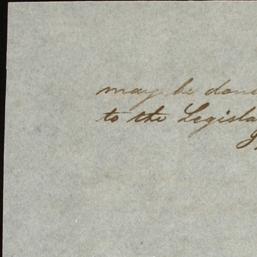 may be done
to the Legisla